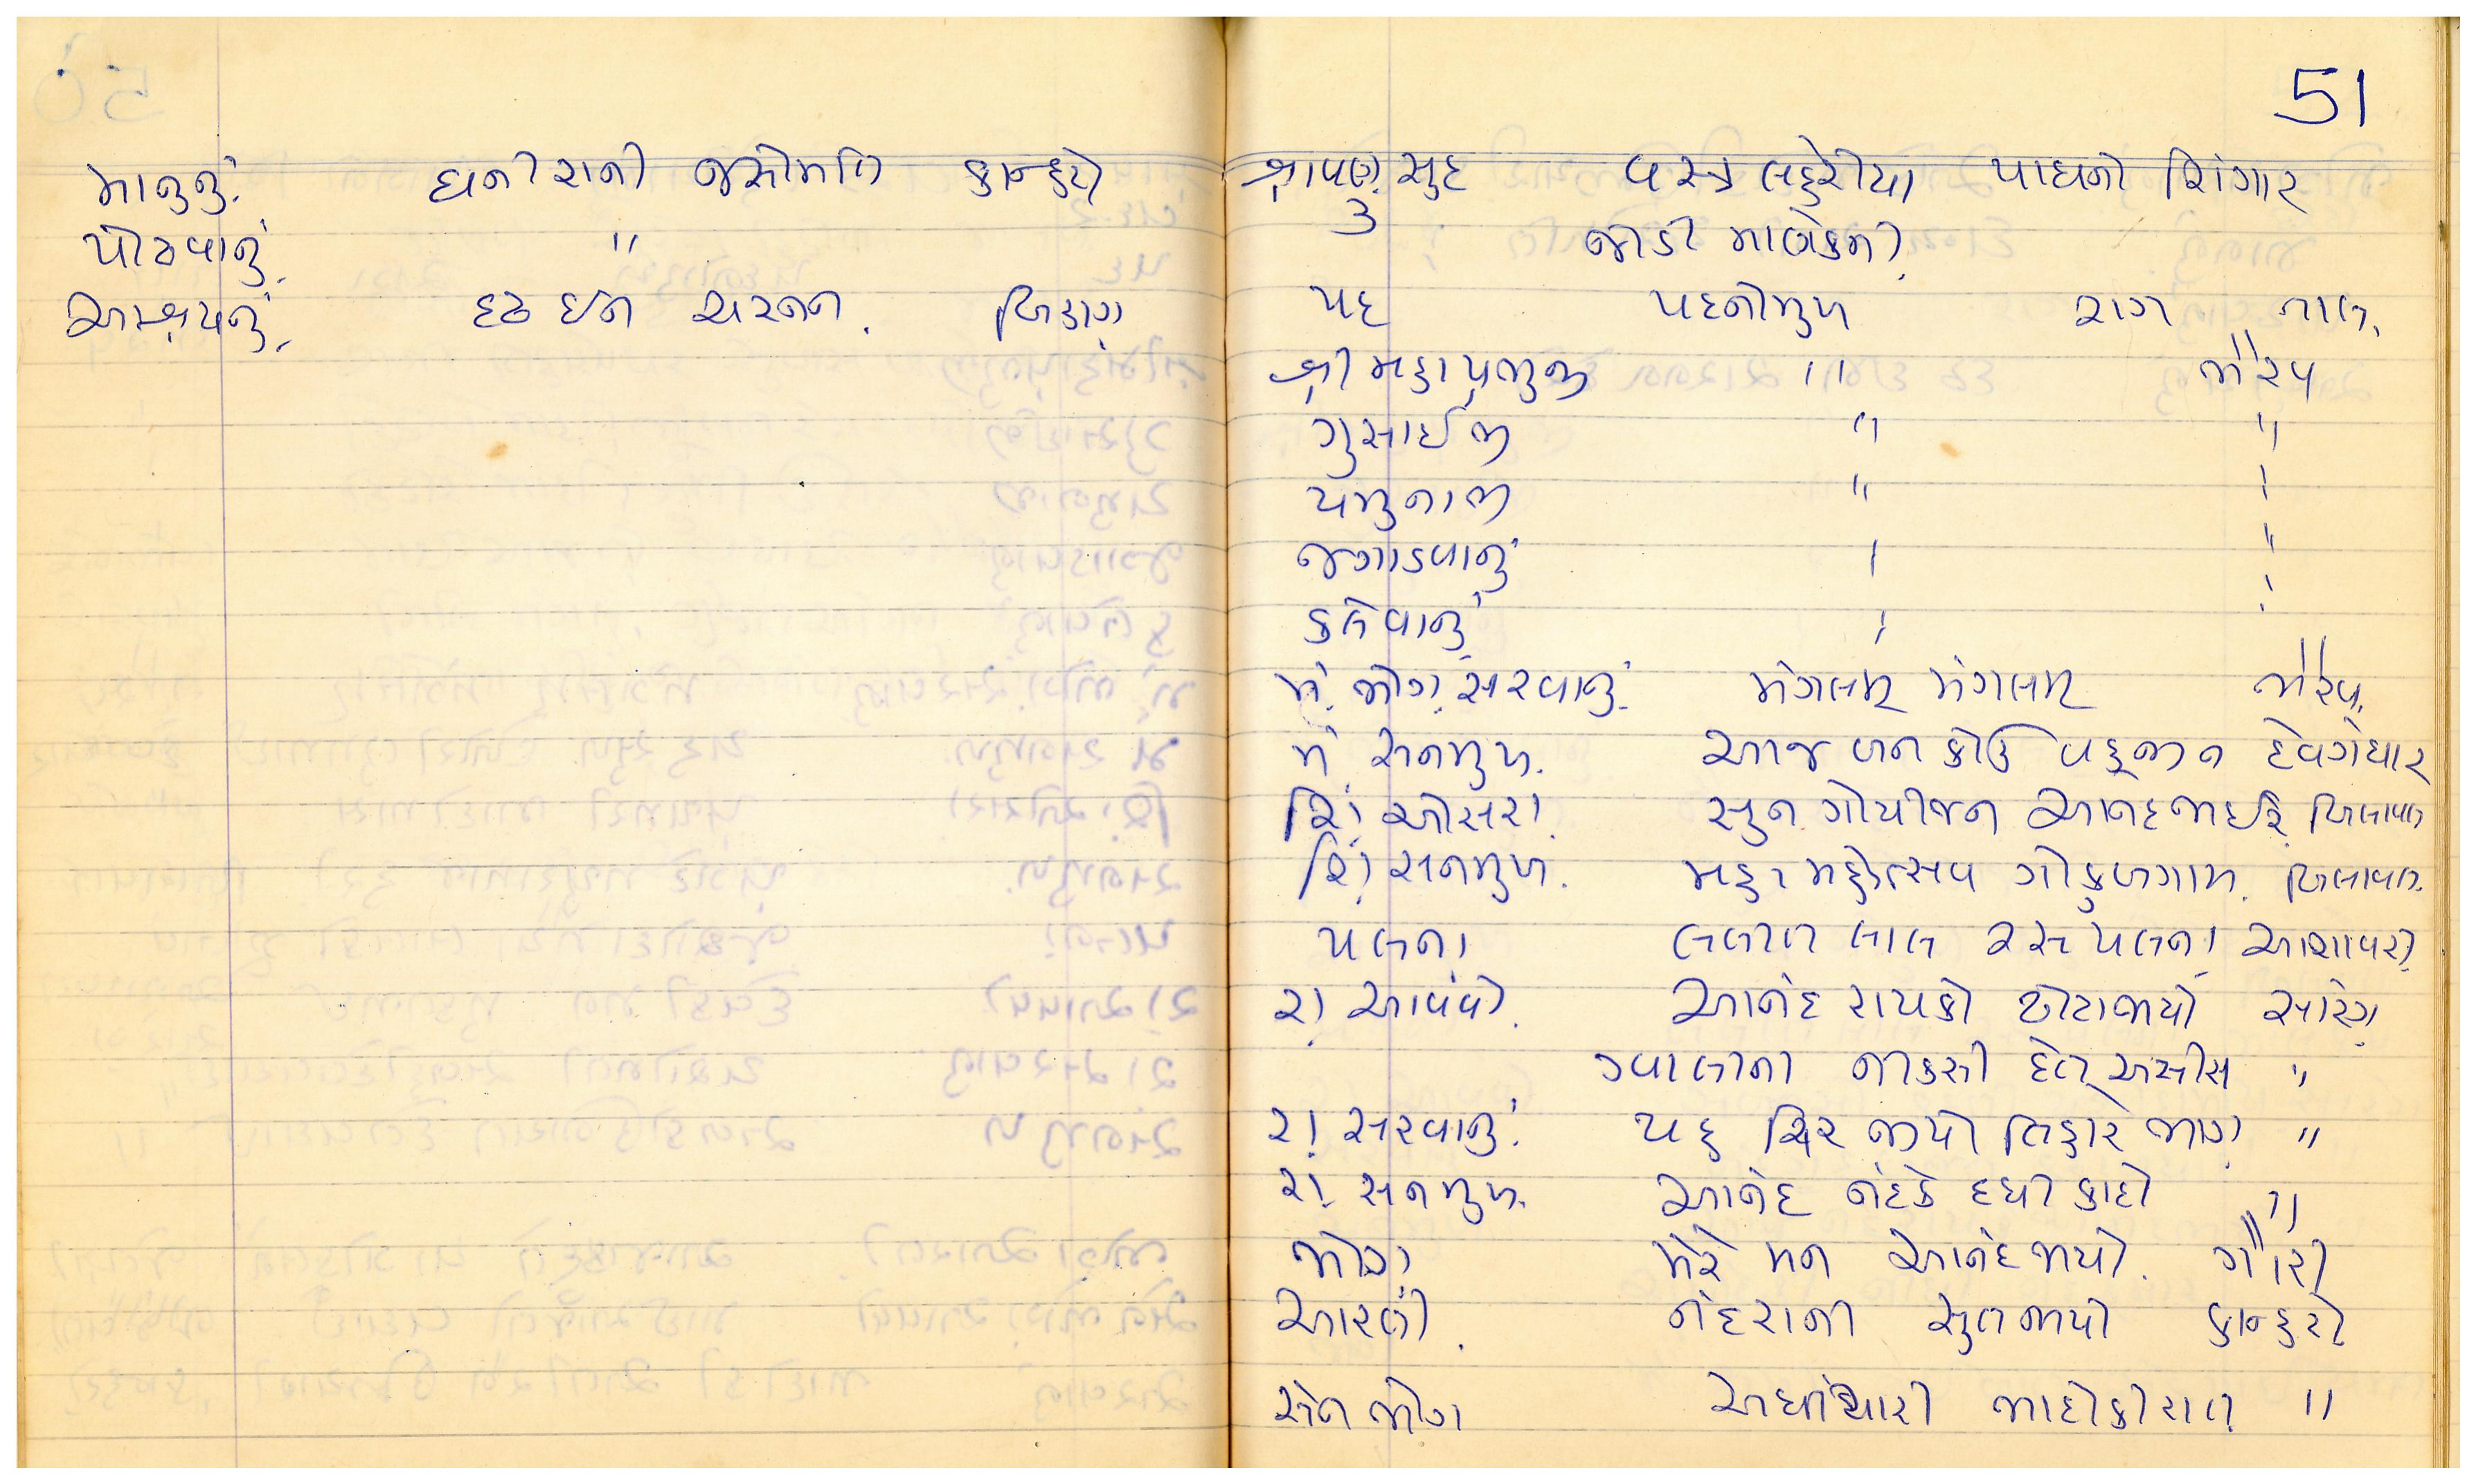 માનનું. ધનીરાની જસોમતિ કાન્હરો
પોઢવાનું. "
આશ્રયનું. દ્રઢ ઈન ચરનન. બિહાગ
51
શ્રાવણ સુદ વસ્ત્ર લહેરીયા પાઘનો શિંગાર
૩ જોડી માણેકની.
પદ પદનીમુખ રાગ તાલ.
શ્રી મહાપ્રભુજી " ભૈરવ
ગુસાઈજી " "
યમુનાજી "
જગાડવાનું "
કલેવાનું
મં. ભોગ. સરવાનું. મંગલમ મંગલમ ભૈરવ.
મં સનમુખ. આજ બન કોઉ દેવગંધાર
શિં. ઓસરા. સુન ગોપીજન આનંદ બિલાવલ
શિં. સનમુખ. મહા મહોત્સવ ગોકુળગામ. બિલાવલ.
પલના લલીત લાલ પલના આશાવરી
રા. આવવો. આનંદ રાયકો ઢોટાજાયો સારંગ
ગ્વાલીની નીકસી દેત અસીસ "
રા. સરવાનું. યહ ચિર જીયો તિહારે "
રા. સનમુખ. આનંદ નંદકે દધી કાદો "
ભોગ મેરે મન આનંદભયો. ગૌરી
આરતી. નંદરાની સુતજાયો કાન્હરો
સેન ભોગ ભાદોકીરાત "